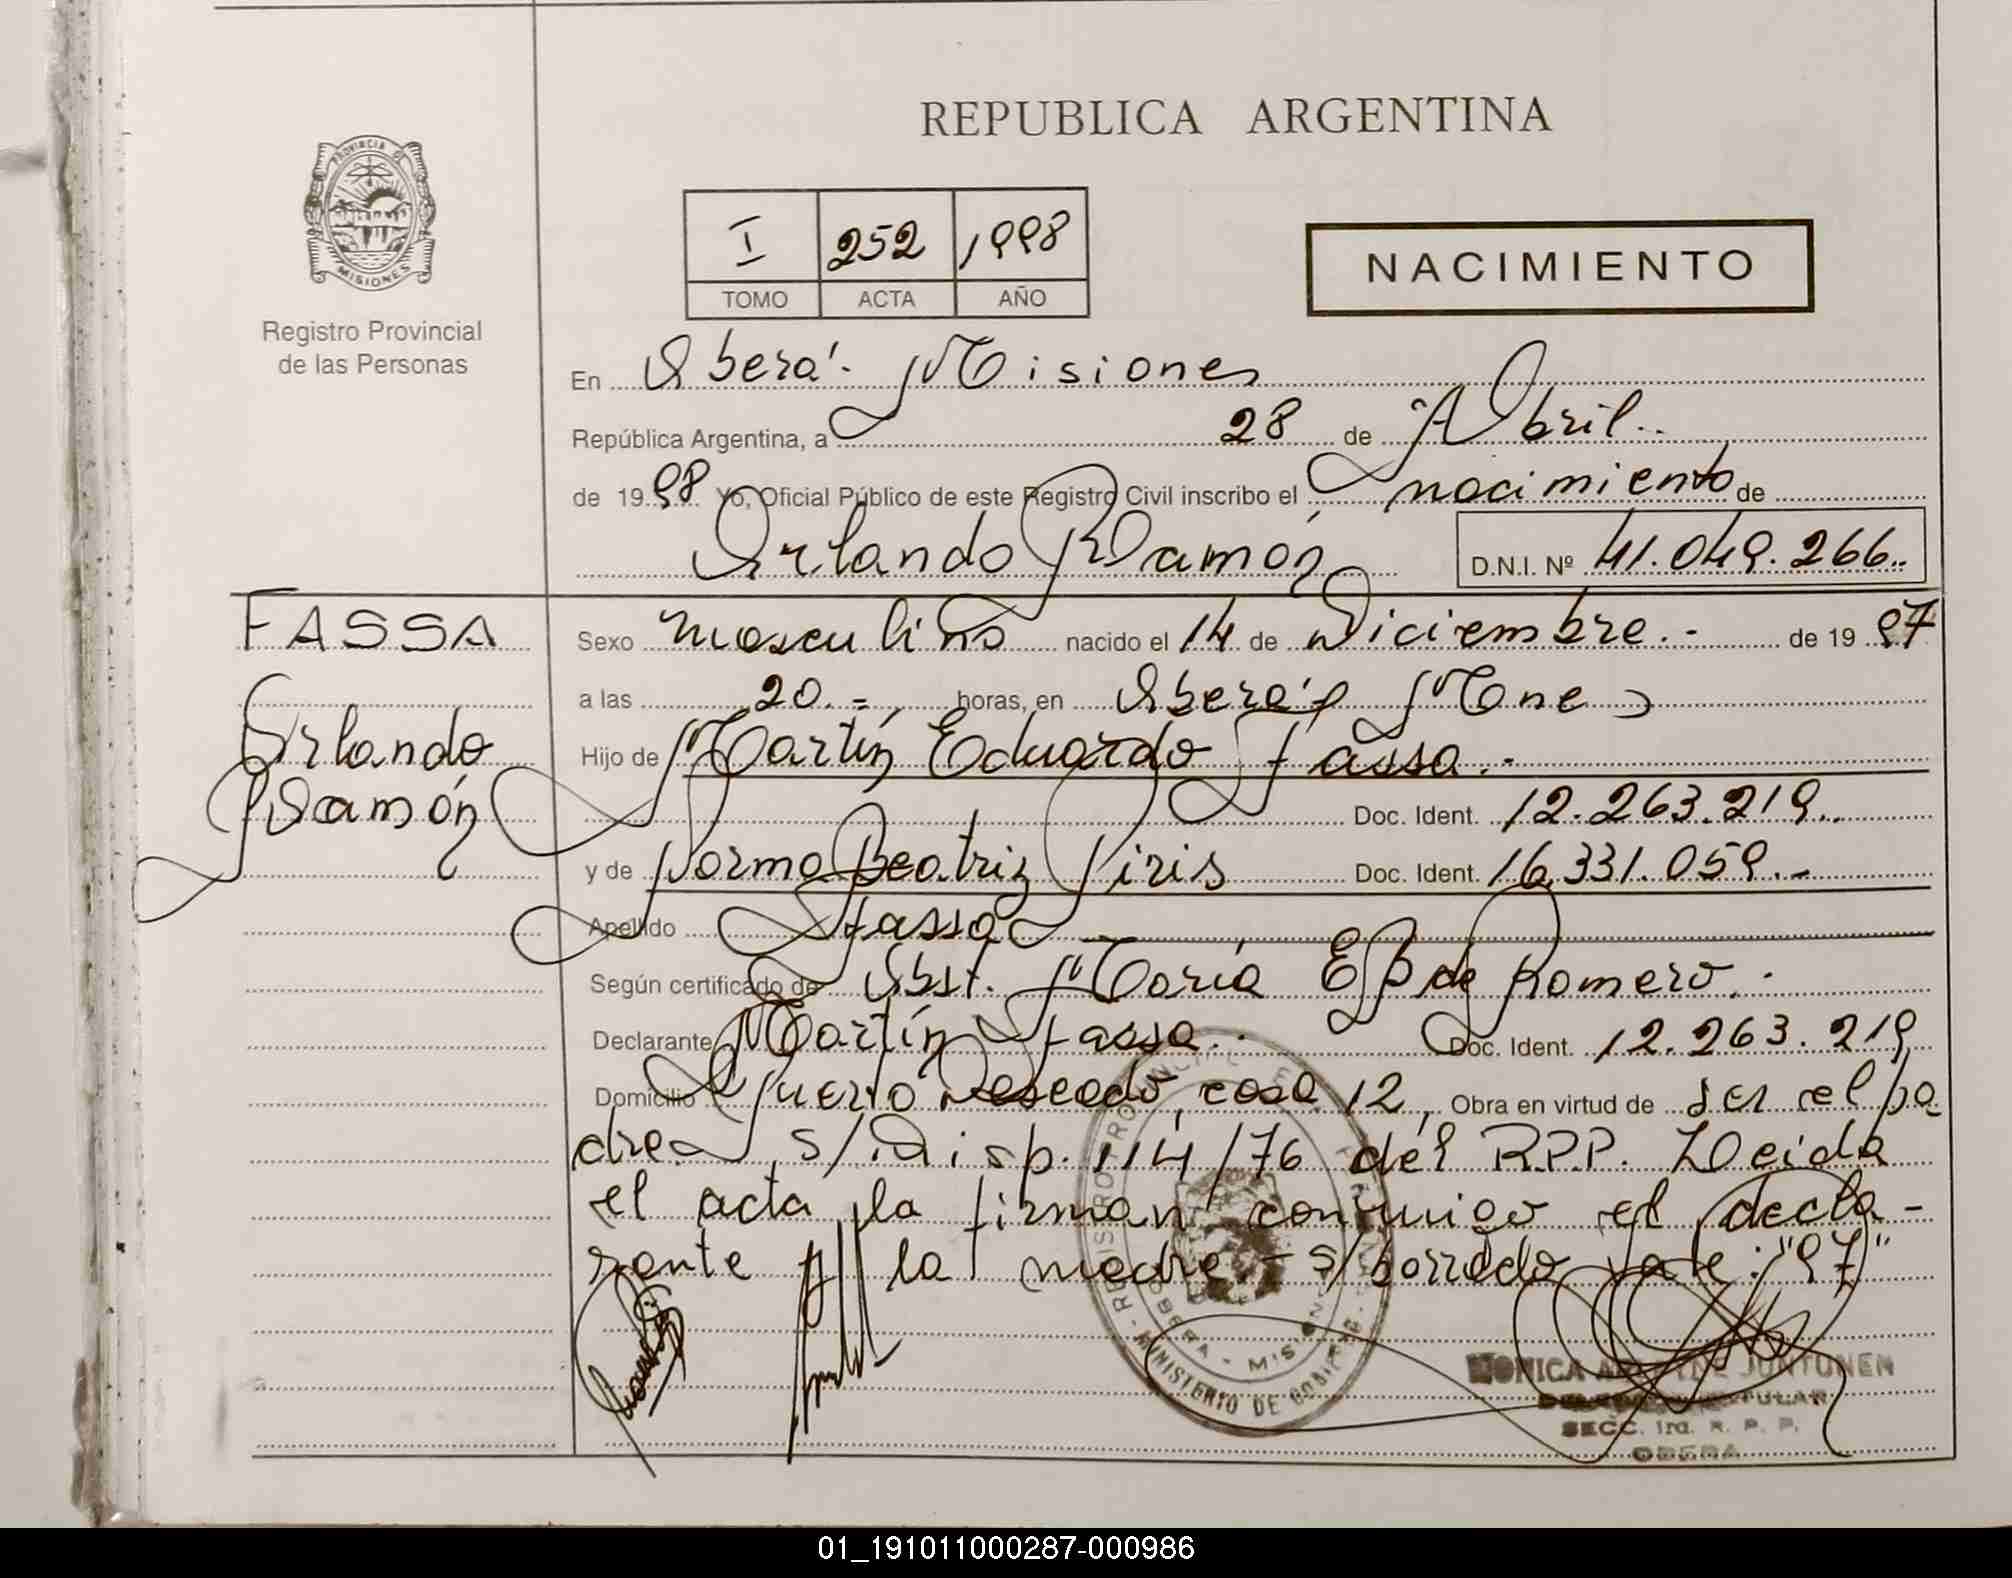 REPUBLICA ARGENTINA
PROVINCIA DE
MISIONES
Registro Provincial
de las Personas
I 252 1998
TOMO ACTA AÑO
NACIMIENTO
En Oberá. Misiones
República Argentina, a 28 de Abril..
de 19 98 Yo, Oficial Público de este Registro Civil inscribo el nacimiento de
Orlando Ramón D.N.I. Nº 41.049.266..
FASSA
Orlando
Ramón
Sexo masculino nacido el 14 de Diciembre.- de 19 97
a las 20.=, horas, en Oberá, Mnes
Hijo de Martín Eduardo Fassa.-
Doc. Ident. 12.263.219..
y de Norma Beatriz Piris Doc. Ident. 16.331.059.-
Apellido Fassa
Según certificado de Obst. María E. B de Romero.-
Declarante Martín Fassa.. Doc. Ident. 12.263.219
Domicilio Puerto Deseado, casa 12, Obra en virtud de ser el pa
dre s/Disp. 114/76 del R.P.P. Leida
el acta, la firman conmigo el decla-
rante y la madre.- s/borrado vale: "97"
REGISTRO PROVINCIAL DE LAS PERSONAS
OBERA - MISIONES
MINISTERIO DE GOBIERNO
MONICA JUNTUNEN
TITULAR
SECC. 1ra. R. P. P.
OBERA
01_191011000287-000986